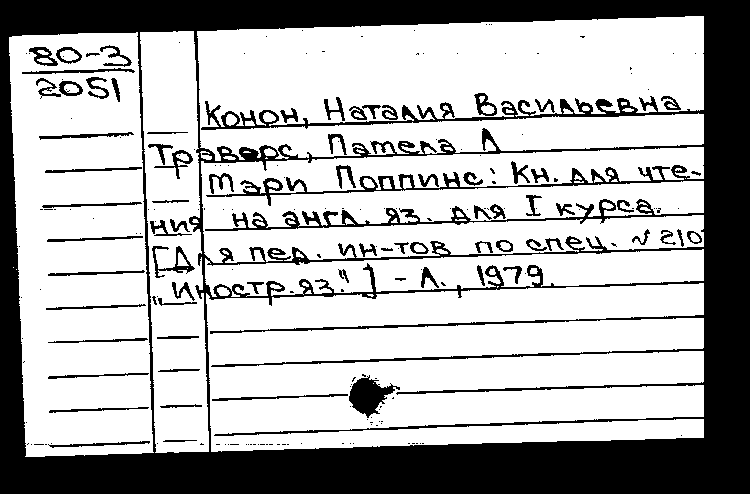 80-3
2051
Конон, Наталия Васильевна.
Траверс, Памела Л
Мэри Поппинс: Кн. для чте-
ния на англ. яз. для I курса.
[Для пед. ин-тов по спец. № 210
„Иностр. яз."] - Л., 1979.